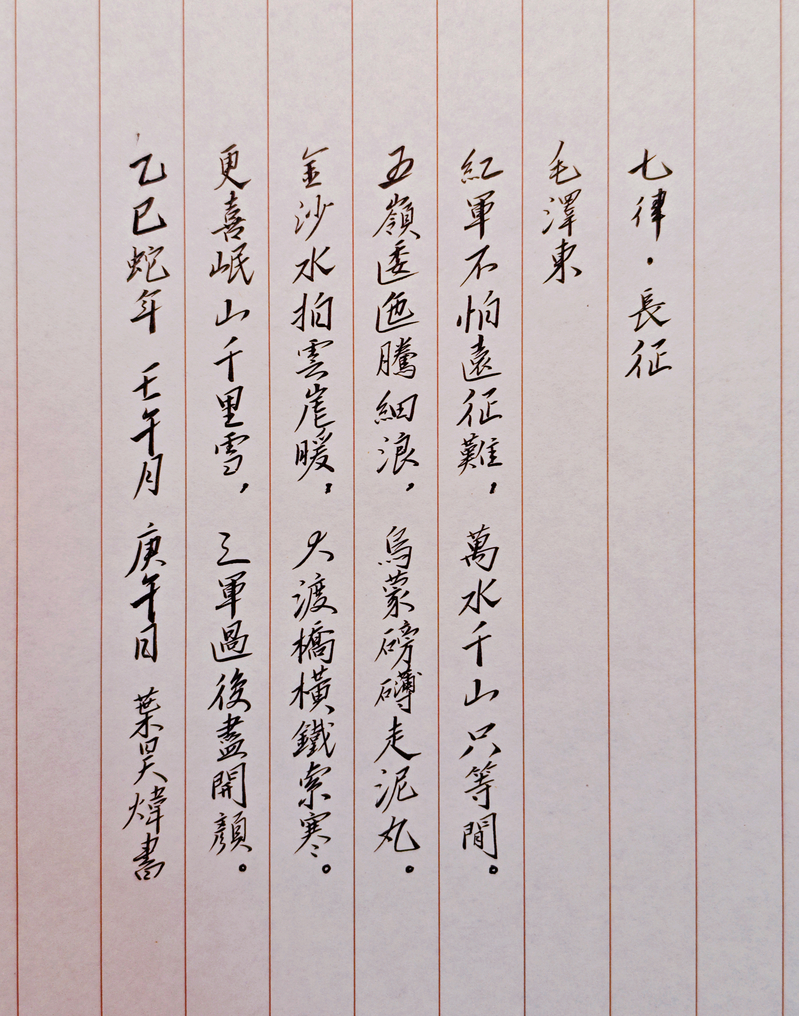 七律·長征
毛澤東
紅軍不怕遠征難，萬水千山只等閒。
五嶺逶迤騰細浪，烏蒙磅礴走泥丸。
金沙水拍雲崖暖，大渡橋橫鐵索寒。
更喜岷山千里雪，三軍過後盡開顏。
乙巳蛇年 壬午月 庚午日 葉昊煒書